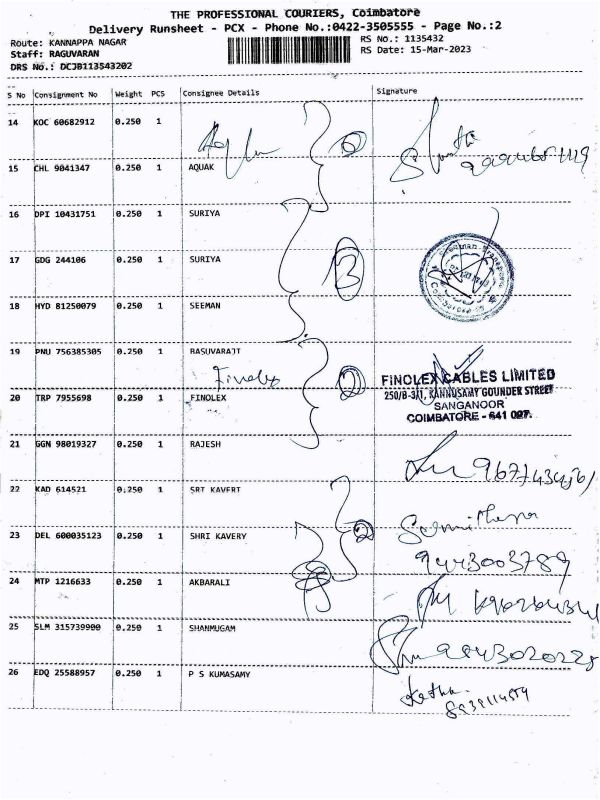 THE PROFESSIONAL COURIERS, Coimbatore
Delivery Runsheet - PCX - Phone No.:0422-3505555 - Page No.:2
Route: KANNAPPA NAGAR RS No.: 1135432
Staff: RAGUVARAN RS Date: 15-Mar-2023
DRS No.: DCJB113543202
S No Consignment No Weight PCS Consignee Details Signature
14 KOC 60682912 0.250 1
15 CHL 9041347 0.250 1 AQUAK
16 DPI 10431751 0.250 1 SURIYA
17 GDG 244106 0.250 1 SURIYA
3
18 HYD 81250079 0.250 1 SEEMAN
19 PNU 756385305 0.250 1 RASUVARAJT
Finolex 2
FINOLEX CABLES LIMITED
20 TRP 7955698 0.250 1 FINOLEX
250/B-3/1, KANNUSAMY GOUNDER STREET
SANGANOOR
COIMBATORE - 641 027.
21 GGN 98019327 0.250 1 RAJESH
22 KAD 614521 0.250 1 SRI KAVERI
23 DEL 600035123 0.250 1 SHRI KAVERY 2
9443003789
24 MTP 1216633 0.250 1 AKBARALI
25 SLM 315739900 0.250 1 SHANMUGAM
26 EDQ 25588957 0.250 1 P S KUMASAMY